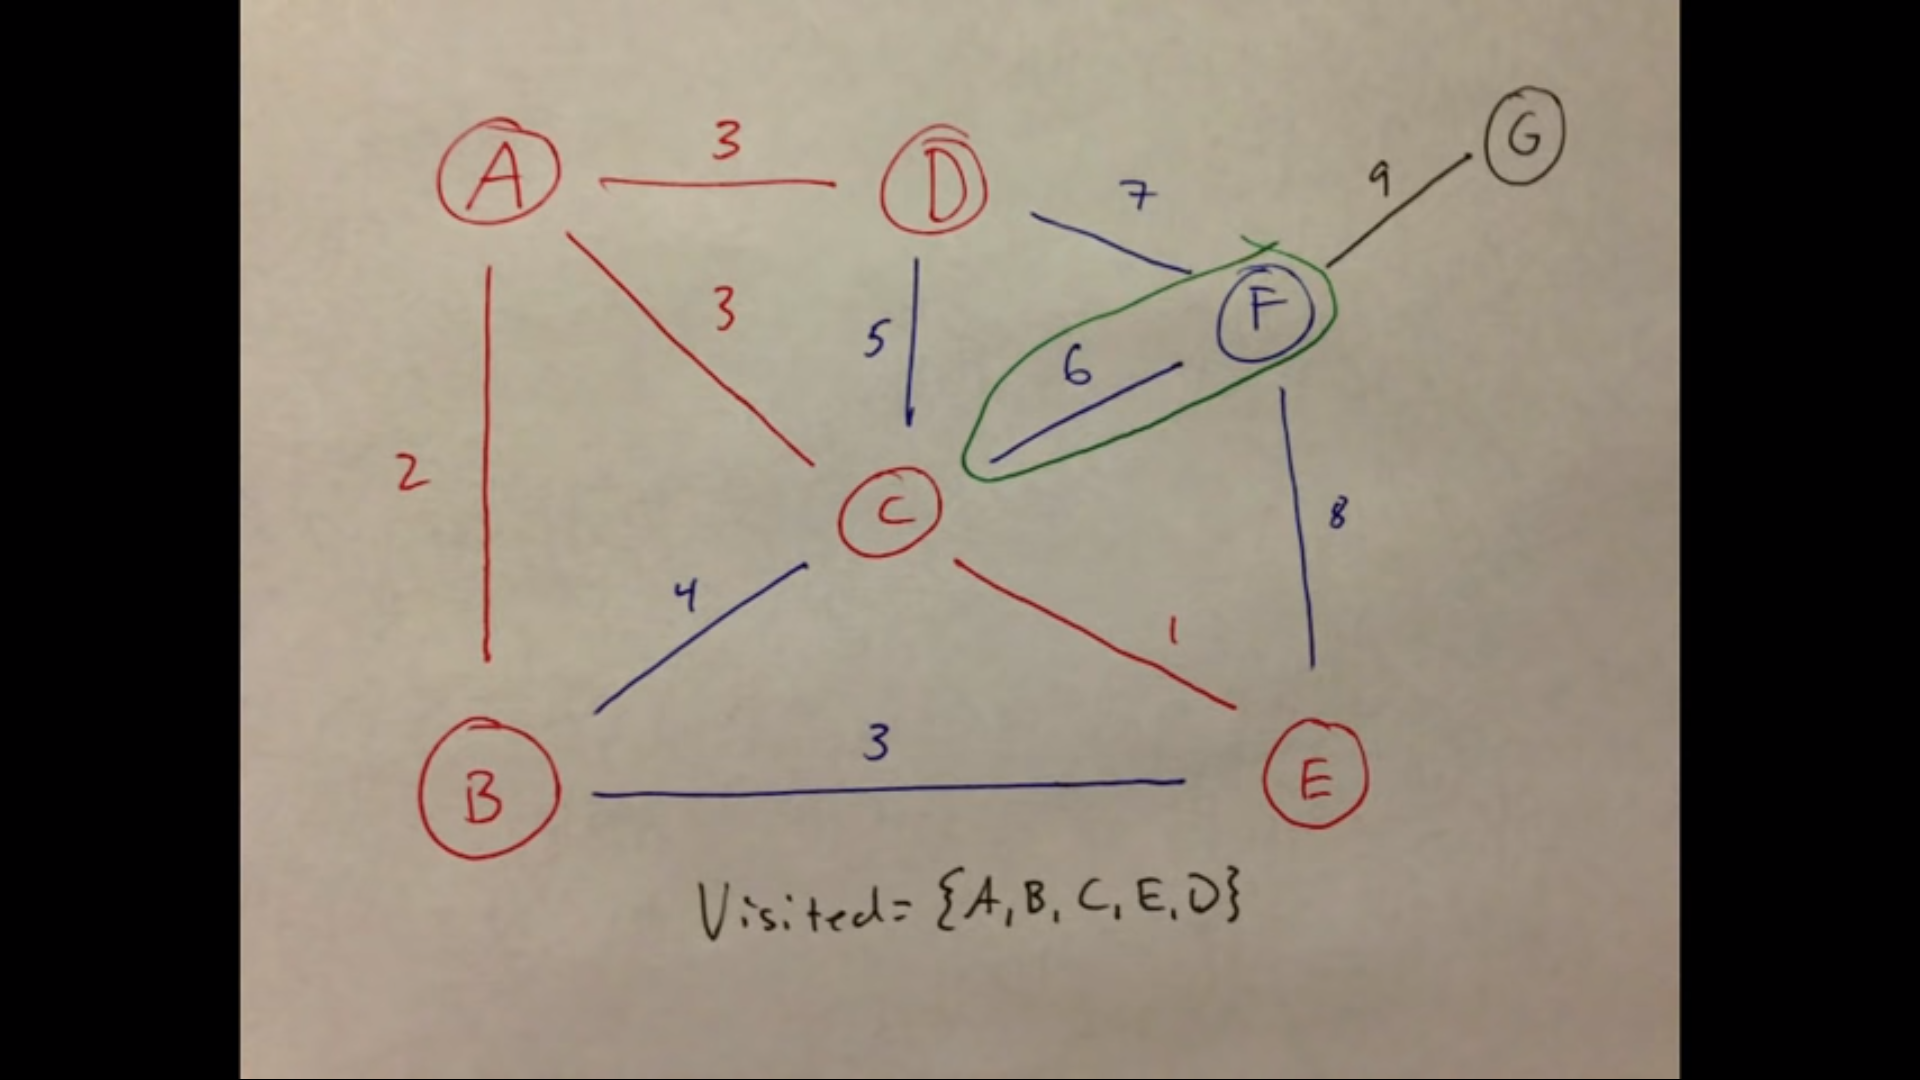 A 3 D 7 9 G
3 5 6 F
2 C 8
4 1
B 3 E
Visited = {A, B, C, E, D}